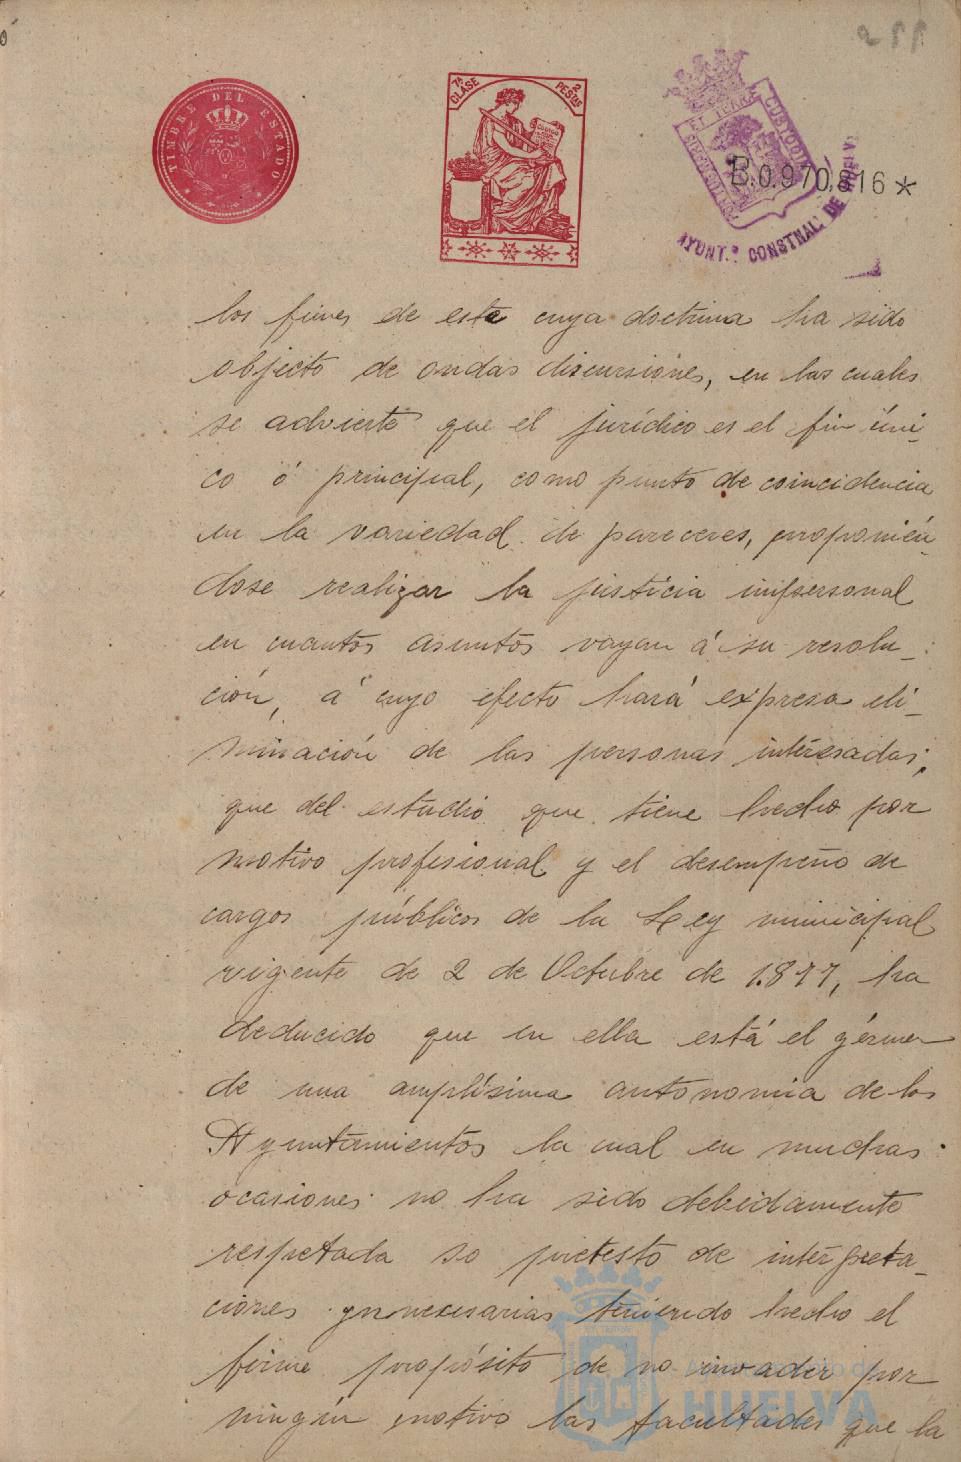 255
TIMBRE DEL ESTADO
7ª CLASE
2 PESTAS
PORTUS MARIS ET TERRAE CUSTODIA
AYUNT.º CONSTNAL DE HUELVA
B.0.970.816*
los fines de este cuya doctrina ha sido
objecto de ondas discursiones, en las cuales
se advierte que el jurídico es el fin úni-
co ó principal, como punto de coincidencia
en la variedad de pareceres, proponién-
dose realizar la justicia impersonal
en cuantos asuntos vayan á su resolu-
ción, á cuyo efecto hará expresa eli-
minación de las personas interesadas;
que del estudio que tiene hecho por
motivo profesional y el desempeño de
cargos públicos de la Ley municipal
vigente de 2 de Octubre de 1.877, ha
deducido que en ella está el gérmen
de una amplísima autonomia de los
Ayuntamientos la cual en muchas
ocasiones no ha sido debidamente
respetada so pretesto de interpreta-
ciones ynnecesarias teniendo hecho el
firme propósito de no invadir por
ningún motivo las facultades que la
Ayuntamiento de
HUELVA